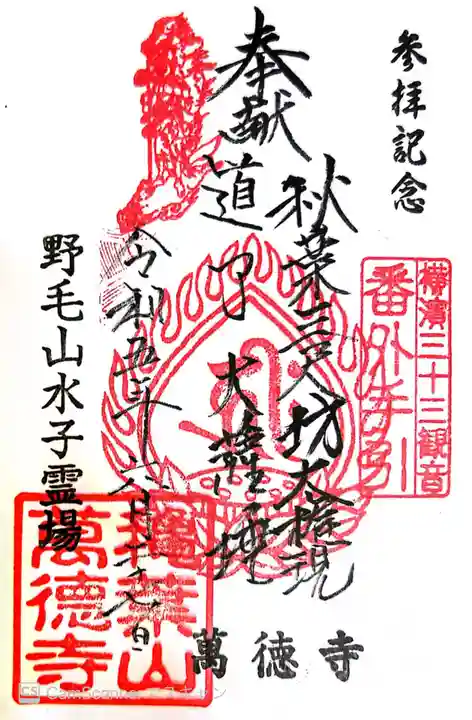 参拝記念
横濱三十三観音
番外寺
奉献
秋葉三尺坊大権現
道了大薩埵
令和五年六月
野毛山水子霊場
萬徳寺
葉山
萬德寺
CS CamScanner でスキャン